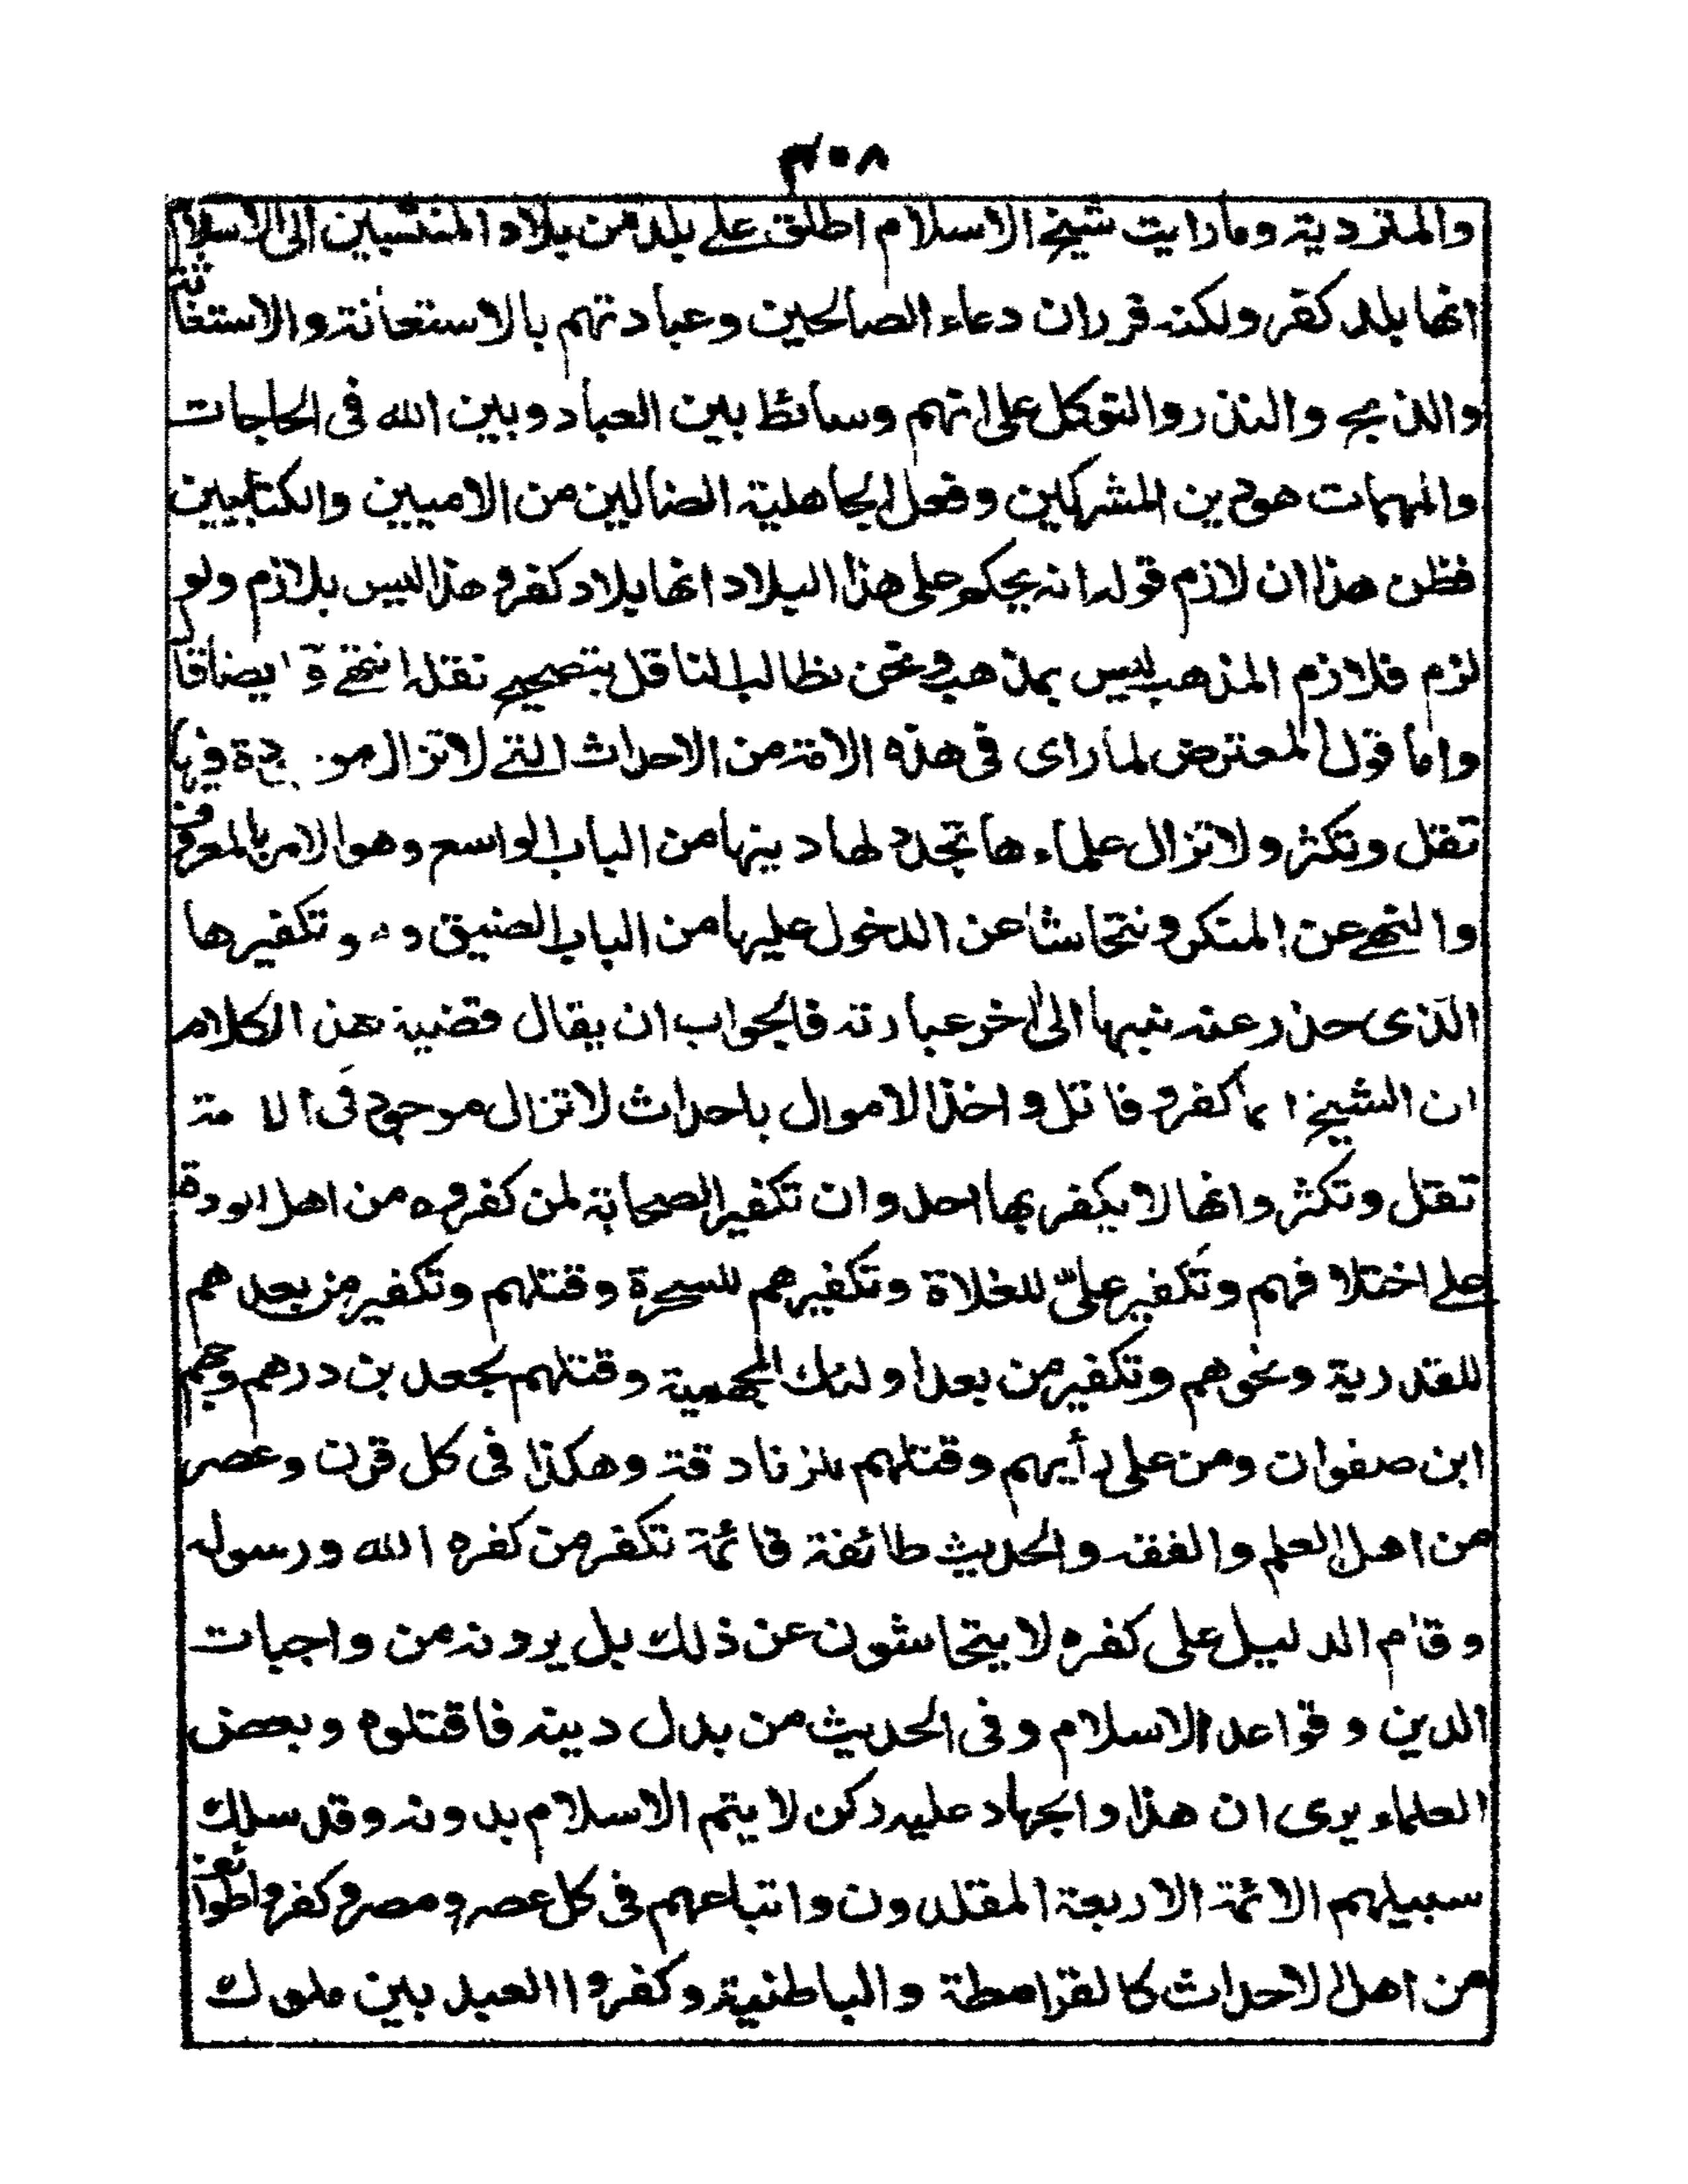 ٣٠٨
والماتردية ومارايت شيخ الاسلام اطلق على بلد من بلاد المنتسبين الى الاسلام
انها بلد كفر ولكنه قرر ان دعاء الصالحين وعبادتهم بالاستعانة والاستغاثة
والذبح والنذر والتوكل على انهم وسائط بين العباد وبين الله فى الحاجات
والمهمات هو دين المشركين وفعل الجاهلية الضالين من الاميين والكتابيين
فظن هذا ان لازم قوله انه يحكم على هذا البلاد انها بلاد كفر وهذا ليس بلازم ولو
لزم فلازم المذهب ليس بمذهب ونحن نطالب الناقل بتصحيح نقله انتهى و ايضا قا
واما قول المعترض لما راى فى هذه الامة من الاحداث التى لا تزال موجودة فيها
تقل وتكثر ولا تزال علماءها تجدد لها دينها من الباب الواسع وهو الامر بالمعروف
والنهى عن المنكر ونتحاشا عن الدخول عليها من الباب الضيق وهو تكفيرها
الذى حذر عنه نبيها الى اخر عبارته فالجواب ان يقال قضية هذ الكلام
ان الشيخ انما كفر وقاتل واخذ الاموال باحداث لا تزال موجود فى الا مة
تقل وتكثر وانها لا يكفر بها احد وان تكفير الصحابة لمن كفروه من اهل الردة
على اختلافهم وتكفير علىّ للغلاة وتكفيرهم للسحرة وقتلهم وتكفير من بعدهم
للقدرية ونحوهم وتكفير من بعد اولئك للجهمية وقتلهم لجعد بن درهم وجهم
ابن صفوان ومن على رأيهم وقتلهم للزنادقة وهكذا فى كل قرن وعصر
من اهل العلم والفقه والحديث طائفة قائمة تكفر من كفره الله ورسوله
وقام الدليل على كفره لا يتحاشون عن ذلك بل يرونه من واجبات
الدين وقواعد الاسلام وفى الحديث من بدل دينه فاقتلوه وبعض
العلماء يرى ان هذا والجهاد عليه ركن لا يتم الاسلام بدونه وقد سلك
سبيلهم الائمة الاربعة المقلدون واتباعهم فى كل عصر ومصر وكفروا طوائف
من اهل الاحداث كالقرامطة والباطنية وكفروا العبيد بين ملوك